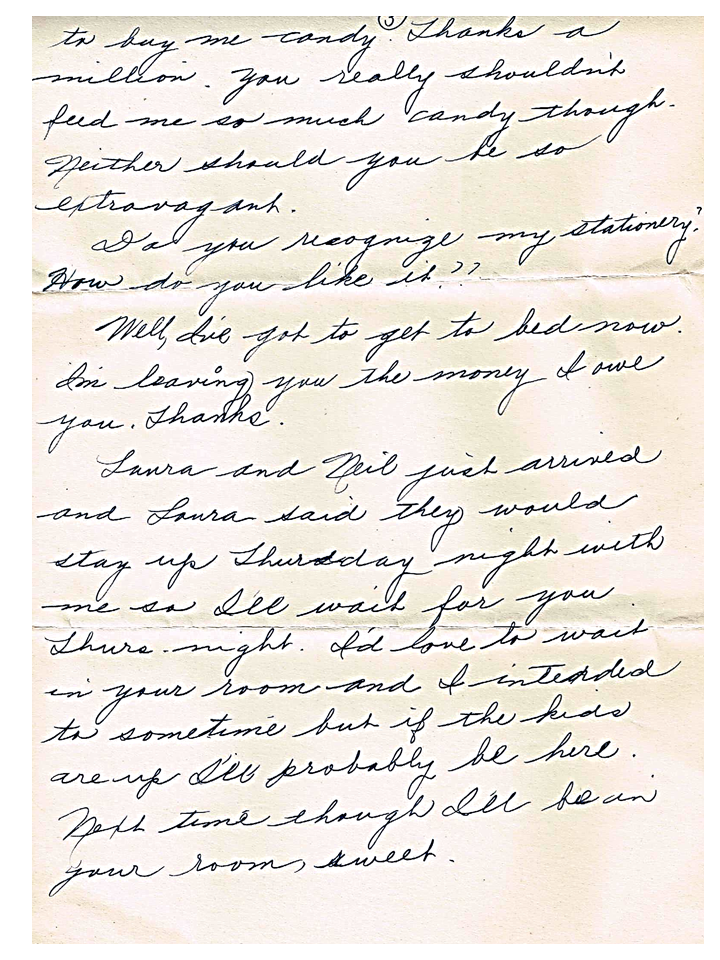 ③
to buy me candy. Thanks a
million. You really shouldn't
feed me so much candy though.
Neither should you be so
extravagant.
Do you recognize my stationery?
How do you like it??
Well, I've got to get to bed now.
I'm leaving you the money I owe
you. Thanks.
Laura and Neil just arrived
and Laura said they would
stay up Thursday night with
me so I'll wait for you
Thurs. night. I'd love to wait
in your room and I intended
to sometime but if the kids
are up I'll probably be here.
Next time though I'll be in
your room, sweet.